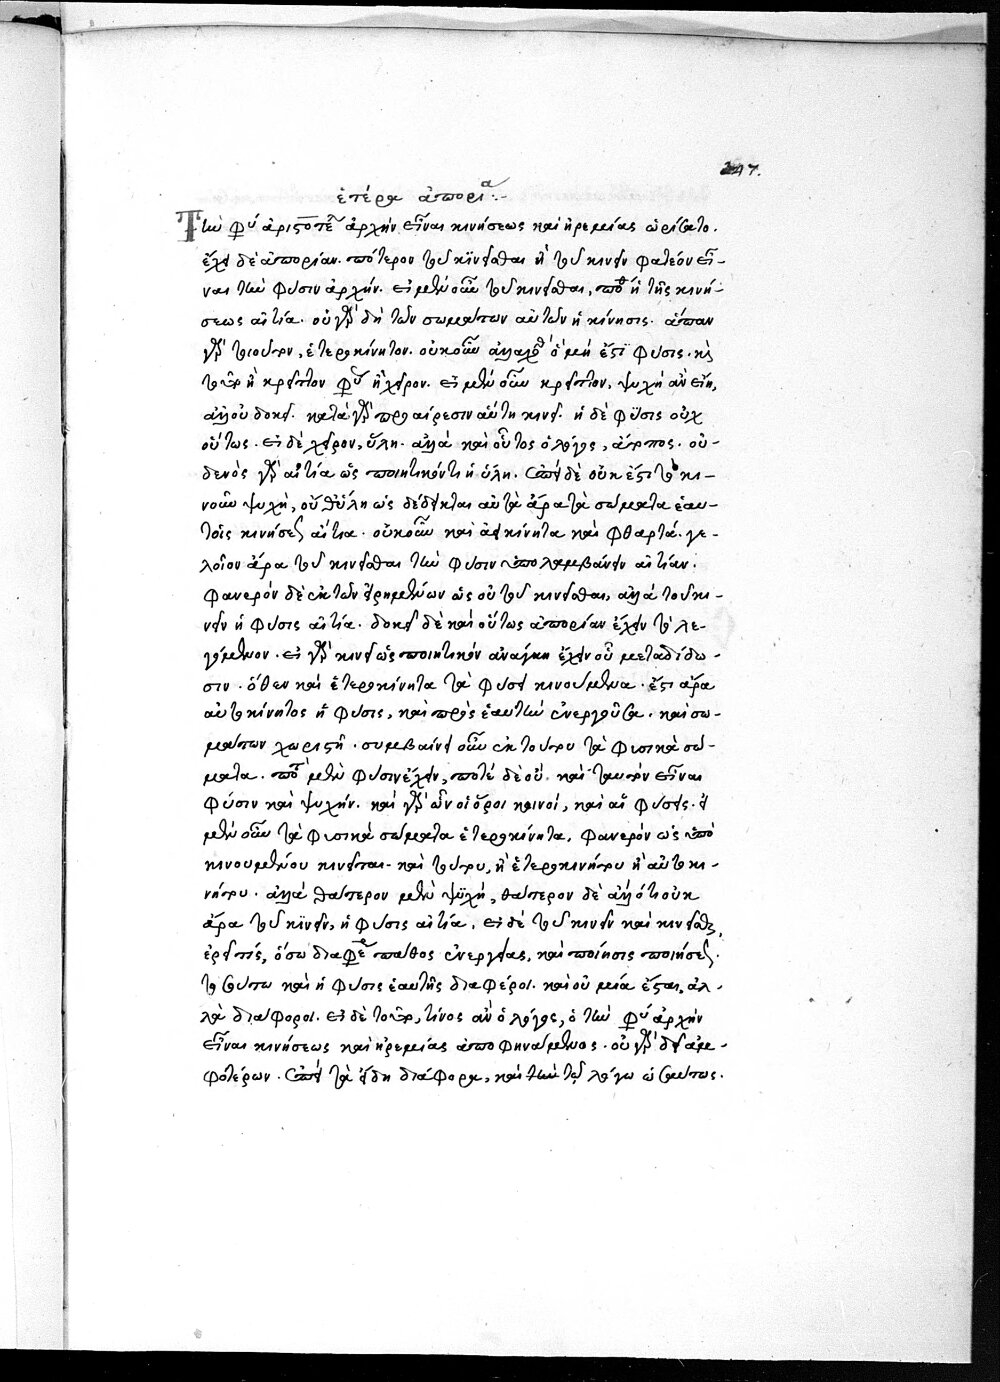 247.
ἑτέρα ἀπορία:-
Τὴν φύσιν ἀριστοτέλης ἀρχὴν εἶναι κινήσεως καὶ ἠρεμίας ὡρίσατο.
ἔχει δὲ ἀπορίαν. πότερον τοῦ κινεῖσθαι ἢ τοῦ κινεῖν φατέον εἶ-
ναι τὴν φύσιν ἀρχήν. εἰ μὲν οὖν τοῦ κινεῖσθαι, πόθεν ἡ τῆς κινή-
σεως αἰτία. οὐ γὰρ δὴ τῶν σωμάτων αὐτῶν ἡ κίνησις. ἅπαν
γὰρ τοιοῦτον, ἑτεροκίνητον. οὐκοῦν ἀλλαχόθεν ὃ μή ἐστι φύσις. καὶ
τοῦτο ἢ κρεῖττον φύσεως ἢ χεῖρον. εἰ μὲν οὖν κρεῖττον, ψυχὴ ἂν εἴη,
ἀλλ' οὐ δοκεῖ. κατὰ γὰρ προαίρεσιν αὕτη κινεῖ. ἡ δὲ φύσις οὐχ
οὕτως. εἰ δὲ χεῖρον, ὕλη. ἀλλὰ καὶ οὗτος ὁ λόγος, ἄτοπος. οὐ-
δενὸς γὰρ αἰτία ὡς ποιητικόν τι ἡ ὕλη. ἐπεὶ δὲ οὐκ ἔστι τὸ κι-
νοῦν ψυχὴ, οὔθ' ὕλη ὡς δέδεικται αὐτὰ ἄρα τὰ σώματα ἑαυ-
τοῖς κινήσεως αἴτια. οὐκοῦν καὶ ἀεικίνητα καὶ φθαρτά. γε-
λοῖον ἄρα τοῦ κινεῖσθαι τὴν φύσιν ὑπολαμβάνειν αἰτίαν.
φανερὸν δὲ ἐκ τῶν εἰρημένων ὡς οὐ τοῦ κινεῖσθαι, ἀλλὰ τοῦ κι-
νεῖν ἡ φύσις αἰτία. δοκεῖ δὲ καὶ οὕτως ἀπορίαν ἔχειν τὸ λε-
γόμενον. εἰ γὰρ κινεῖ ὡς ποιητικὸν ἀνάγκη ἔχειν οὗ μεταδίδω-
σιν. ὅθεν καὶ ἑτεροκίνητα τὰ φύσει κινούμενα. ἔστι ἄρα
αὐτοκίνητος ἡ φύσις, καὶ πρὸς ἑαυτὴν ἐνεργοῦσα. καὶ σω-
μάτων χωριστή. συμβαίνει οὖν ἐκ τούτου τὰ φυσικὰ σώ-
ματα. ποτὲ μὲν φύσιν ἔχειν, ποτὲ δὲ οὔ. καὶ ταυτὸν εἶναι
φύσιν καὶ ψυχήν. καὶ γὰρ ὧν οἱ ὅροι κοινοί, καὶ αἱ φύσεις. εἰ
μὲν οὖν τὰ φυσικὰ σώματα ἑτεροκίνητα, φανερὸν ὡς ὑπὸ
κινουμένου κινεῖται. καὶ τούτου, ἢ ἑτεροκινήτου ἢ αὐτοκι-
νήτου. ἀλλὰ θάτερον μὲν ψυχή, θάτερον δὲ δῆλον ὅτι οὐκ
ἄρα τοῦ κινεῖν, ἡ φύσις αἰτία. εἰ δὲ τοῦ κινεῖν καὶ κινεῖσθαι
ἐρεῖ τίς, ὅσω διαφέρει πάθος ἐνεργείας, καὶ ποίησις ποιήσεως.
τοσούτω καὶ ἡ φύσις ἑαυτῆς διαφέροι. καὶ οὐ μία ἔσται, ἀλ-
λὰ διάφοροι. εἰ δὲ τοῦτο, τίνος ἂν ὁ λόγος, ὁ τὴν φύσιν ἀρχὴν
εἶναι κινήσεως καὶ ἠρεμίας ἀποφηνάμενος. οὐ γὰρ δὴ ἀμ-
φοτέρων. ἐπεὶ τὰ εἴδη διάφορα, καὶ τῶ λόγω ὡσαύτως.